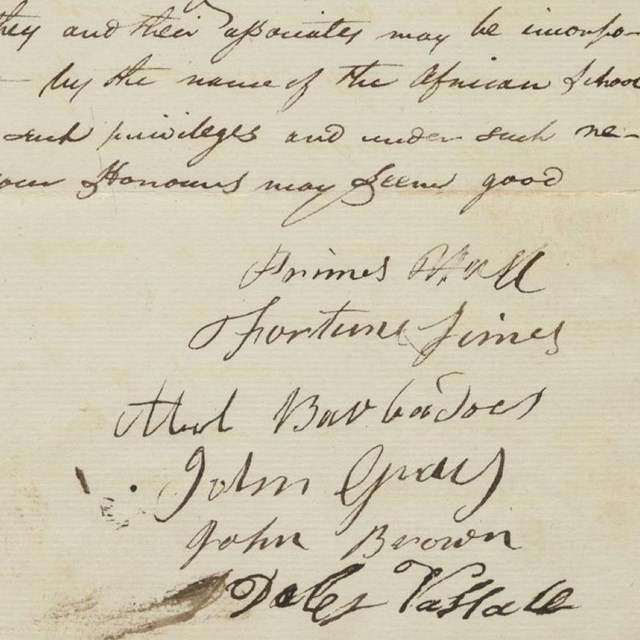 they and their associates may be incorpo-
by the name of the African School
such priviledges and under such re-
your Honours may Seem good
Primes Hall
Fortune Simes
Abel Barbadoes
John Gray
John Brown
Daley Vassall